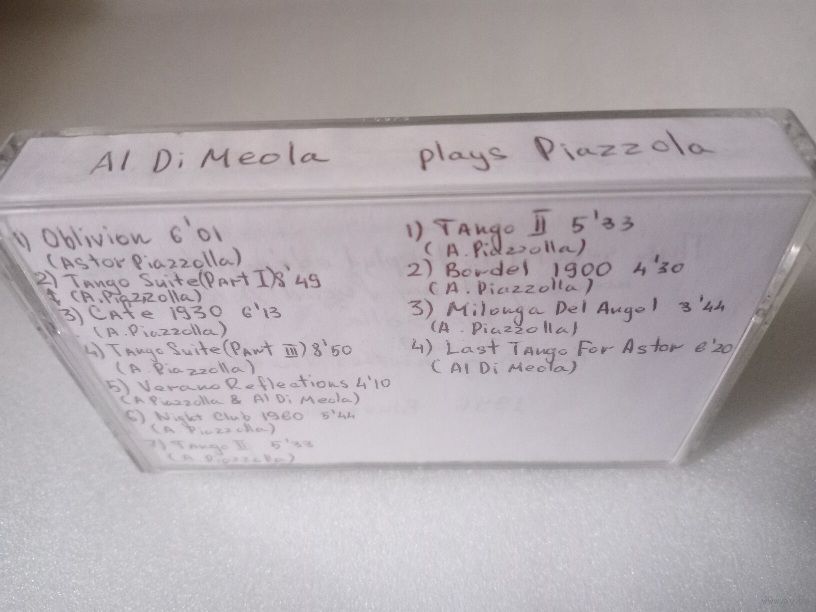 Al Di Meola plays Piazzola
1) Oblivion 6'01
(Astor Piazzolla)
2) Tango Suite (Part I) 8'49
(A. Piazzolla)
3) Cafe 1930 6'13
(A. Piazzolla)
4) Tango Suite (Part III) 8'50
(A. Piazzolla)
5) Verano Reflections 4'10
(A Piazzolla & Al Di Meola)
6) Night Club 1960 5'44
(A Piazzolla)
7) Tango II 5'33
(A. Piazzolla)
1) Tango II 5'33
(A. Piazzolla)
2) Bordel 1900 4'30
(A. Piazzolla)
3) Milonga Del Angel 3'44
(A. Piazzolla)
4) Last Tango For Astor 6'20
(Al Di Meola)